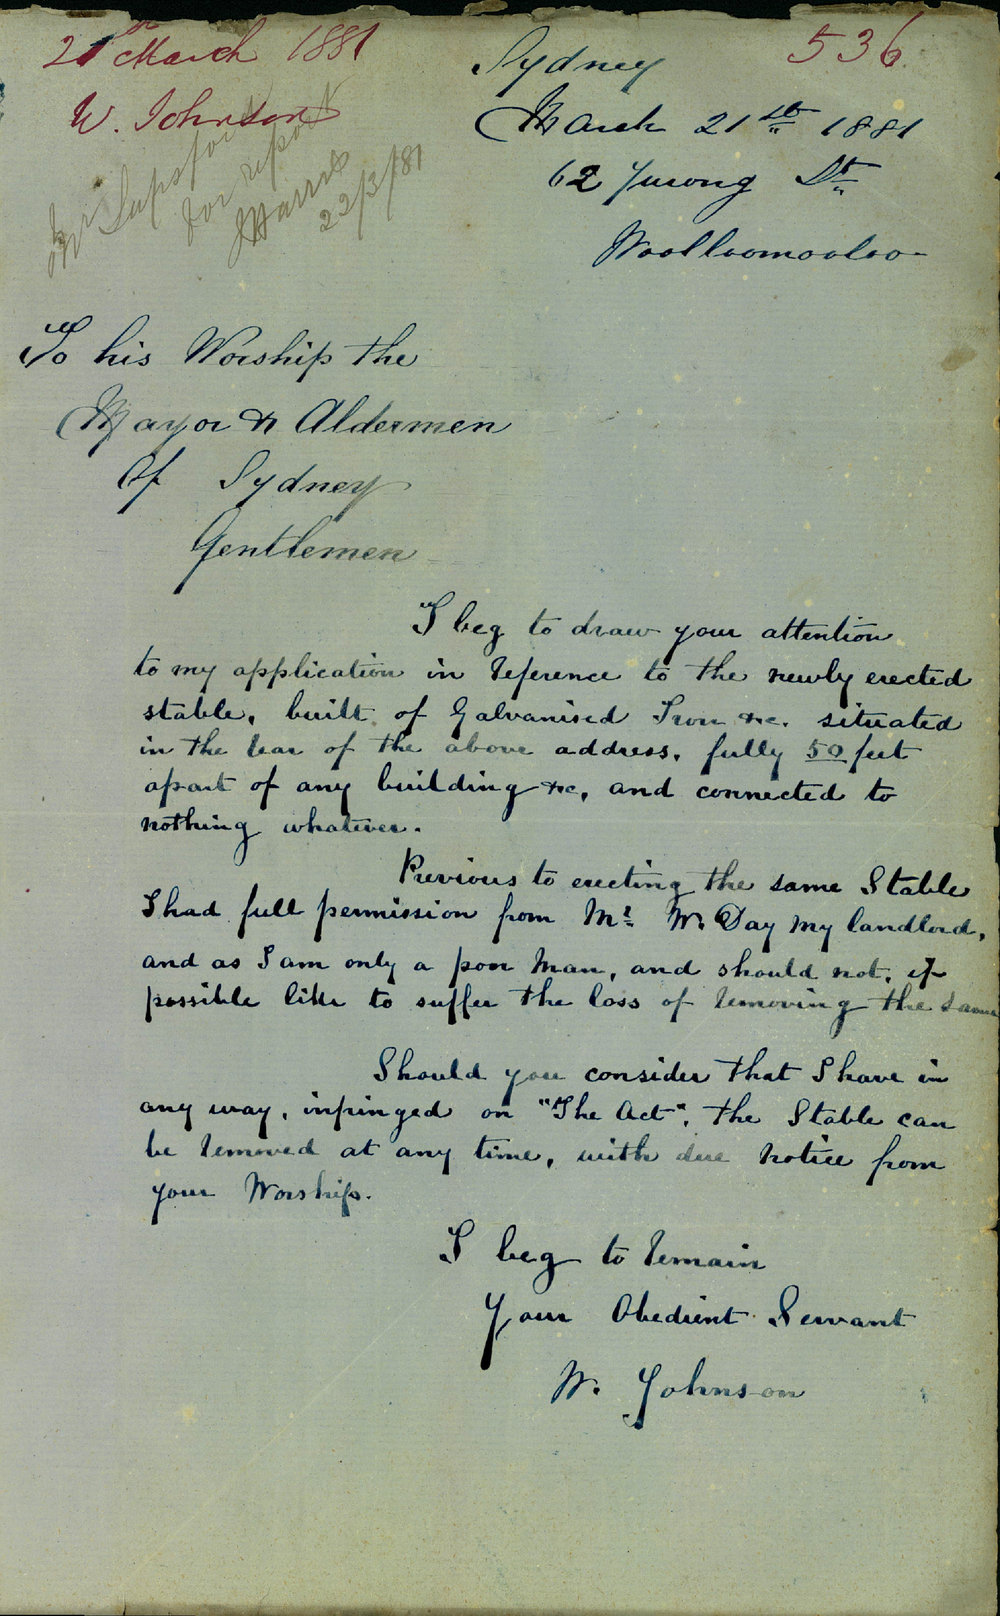 21st March 1881
W. Johnson
536
Mr Sapsford
for report
JHarris
22/3/81
Sydney
March 21st 1881
62 Yurong St
Woolloomooloo
To his Worship the
Mayor & Aldermen
Of Sydney
Gentlemen
I beg to draw your attention
to my application in reference to the newly erected
stable, built of Galvanised Iron &c. situated
in the rear of the above address, fully 50 feet
apart of any building &c, and connected to
nothing whatever.
Previous to erecting the same Stable
I had full permission from Mr. W. Day my landlord,
and as I am only a poor Man, and should not, if
possible like to suffer the loss of removing the same
Should you consider that I have in
any way, infringed on "The Act", the Stable can
be removed at any time, with due notice from
your Worship.
I beg to remain
Your Obedient Servant
W. Johnson